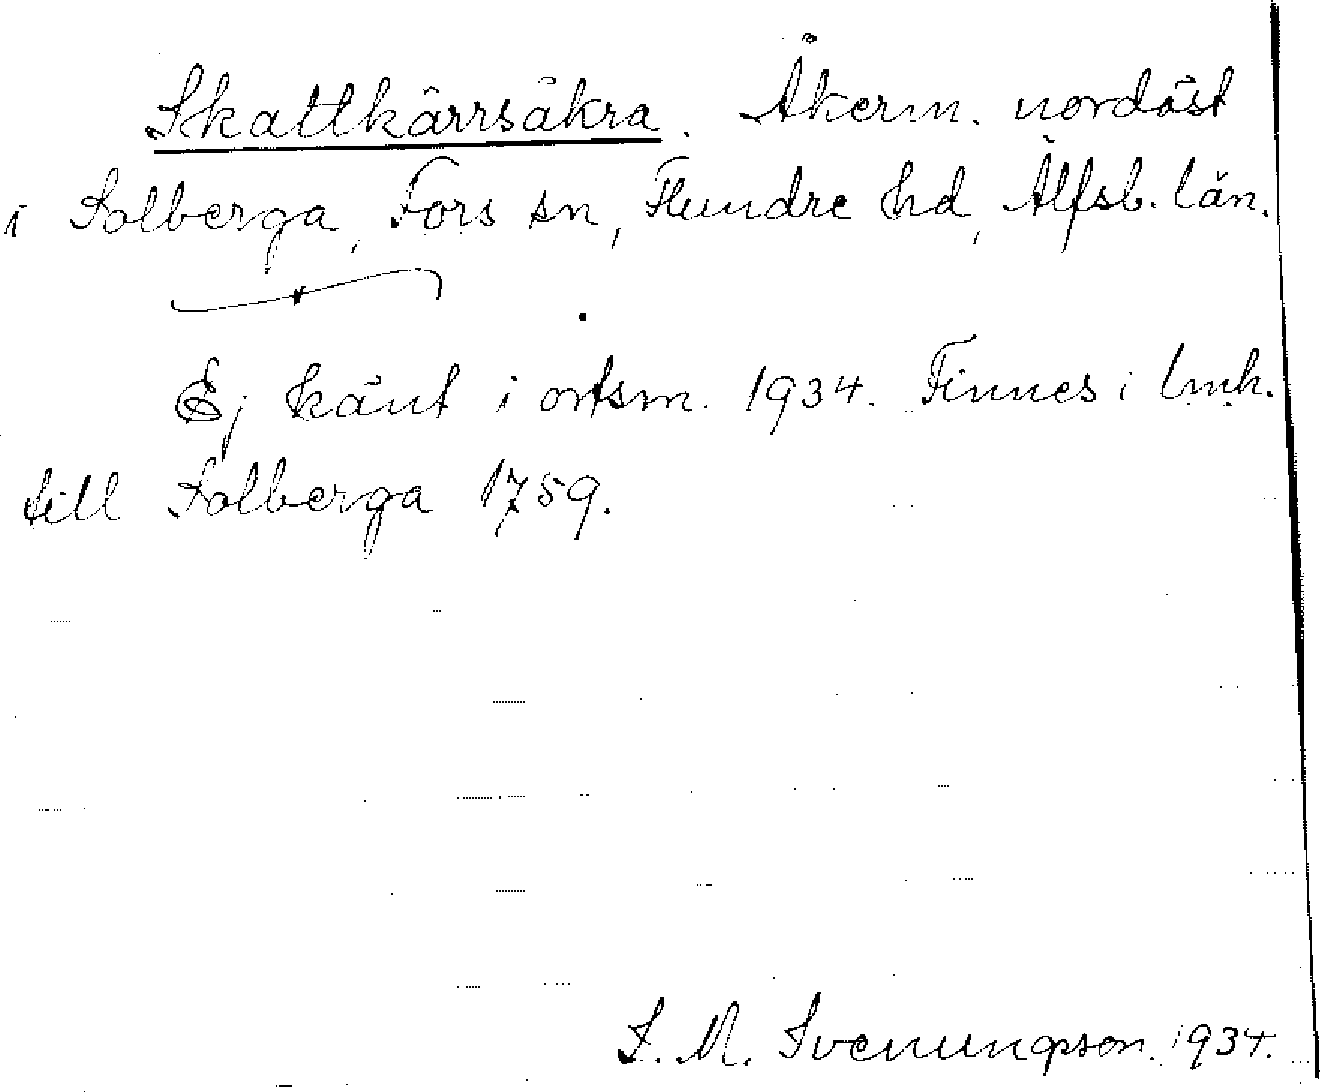 Skattkärrsåkra. Åkerm. nordöst
i Solberga, Fors sn, Flundre hd, Älfsb. län.
Ej känt i ortsm. 1934. Finnes i lmh.
till Solberga 1759.
S. M. Svenungsson. 1934.